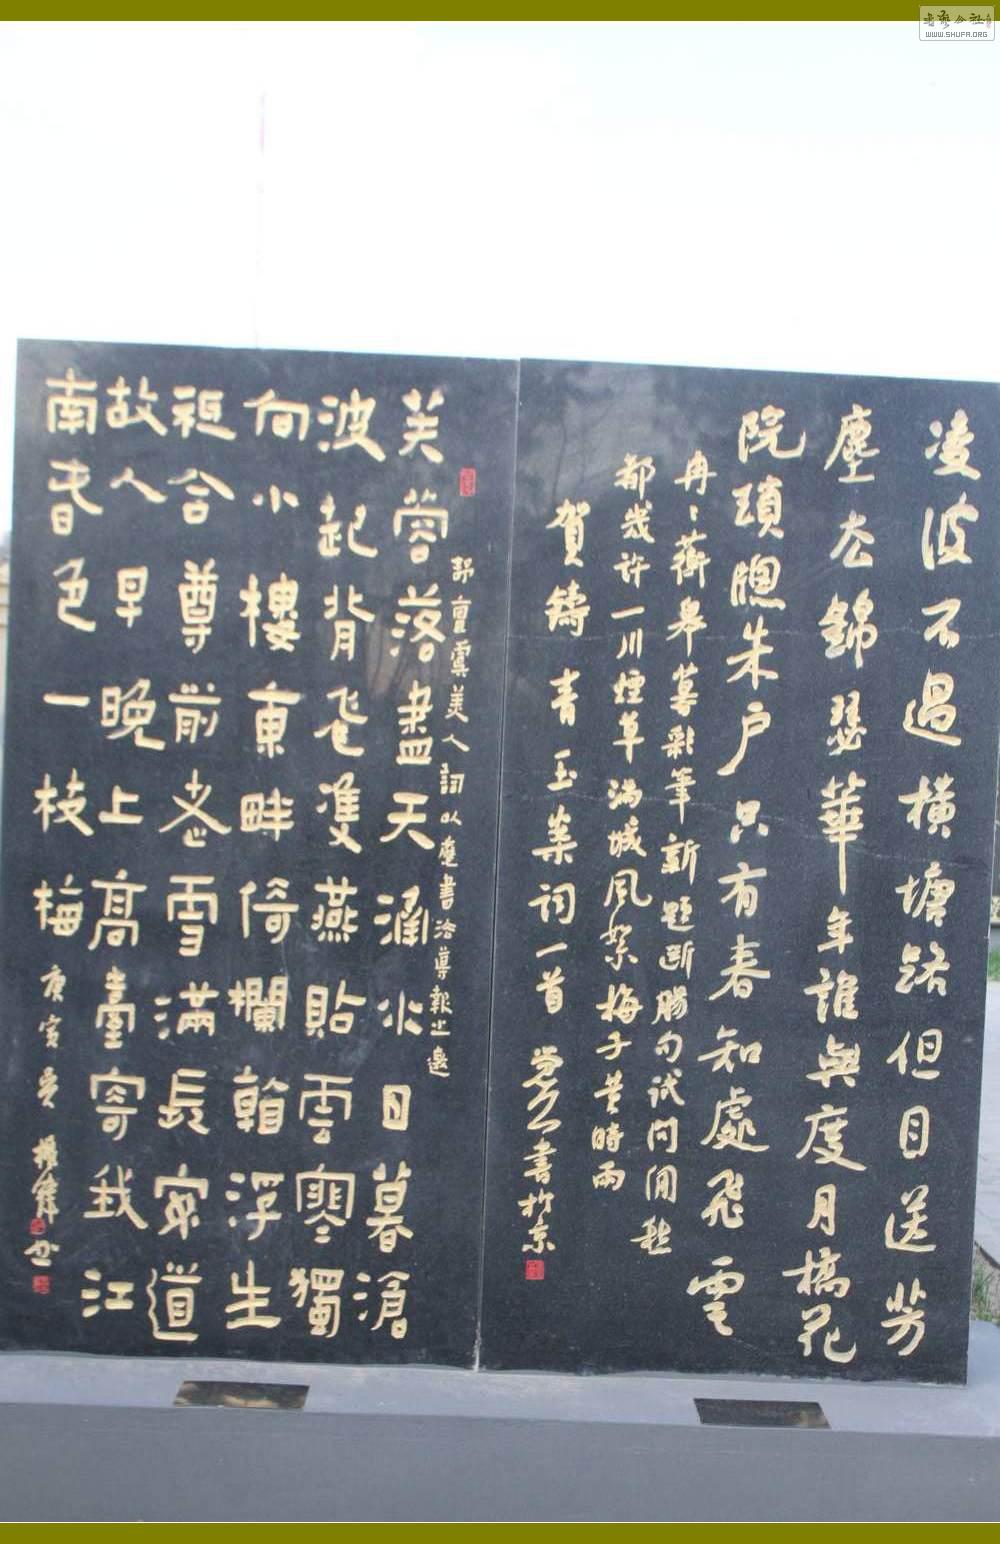 凌波不過橫塘路但目送芳
塵去錦瑟華年誰與度月橋花
院瑣牕朱戶只有春知處飛雲
冉〻蘅皋暮彩筆新題斷腸句試問閒愁
都幾許一川煙草滿城風絮梅子黃時雨
賀鑄青玉案詞一首 書於京
舒亶虞美人詞以應書法導報之邀
芙蓉落盡天涵水日暮滄
波起背飛雙燕貼雲寒獨
向小樓東畔倚欄看浮生
祗合尊前老雪滿長安道
故人早晚上高臺寄我江
南春色一枝梅 庚寅 吳振鋒書
WWW.SHUFA.ORG